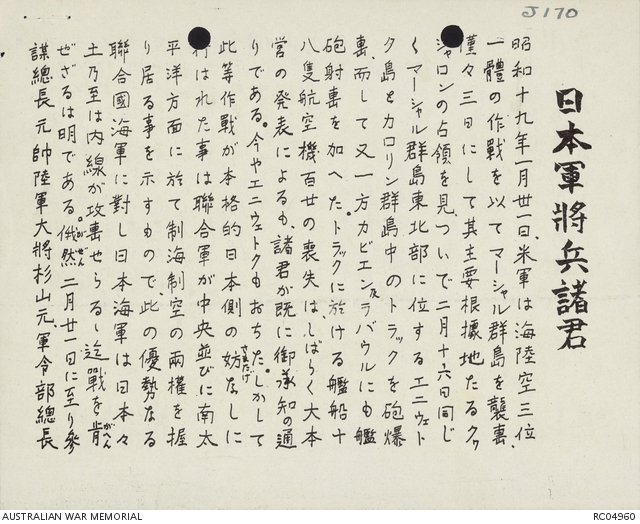 J170
日本軍將兵諸君
昭和十九年一月卅一日、米軍は海陸空三位
一體の作戰を以てマーシャル群島を襲撃、
僅々三日にして其主要根據地たるクワ
ジャロンの占領を見、ついで二月十六日同じ
くマーシャル群島東北部に位するエニウェト
ク島とカロリン群島中のトラックを砲爆
撃、而して又一方カビエン及ラバウルにも艦
砲射撃を加へた。トラックに於ける艦船十
八隻航空機百廿の喪失はしばらく大本
營の發表によるも、諸君が既に御承知の通
りである。今やエニウェトクもおちた。しかして
此等作戰が本格的日本側の妨なしに
さまたげ
行はれた事は聯合軍が中央並びに南太
平洋方面に於て制海制空の兩權を握
り居る事を示すもので、此の優勢なる
聯合國海軍に對し日本海軍は日本々
土乃至は内線が攻撃せらるゝ迄戰を肯
がへん
ぜざるは明である。俄然二月廿一日に至り參
がぜん
謀總長元帥陸軍大將杉山元、軍令部總長
AUSTRALIAN WAR MEMORIAL
RC04960